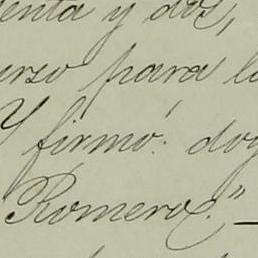 enta y dos,
urso para la
Y firmó: doy
Romero."—